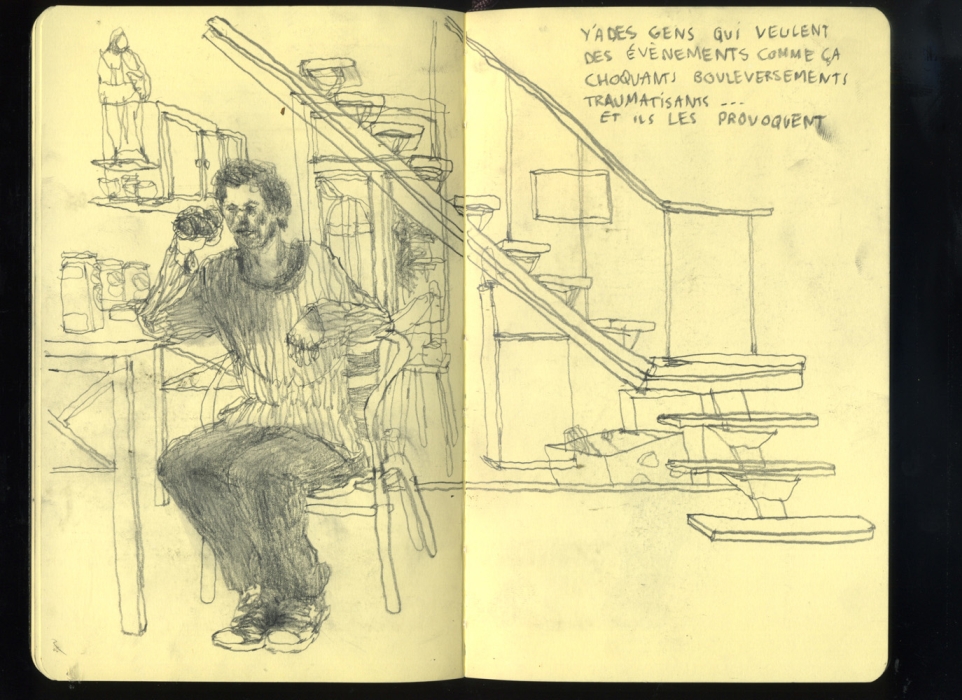 Y'A DES GENS QUI VEULENT
DES ÉVÈNEMENTS COMME ÇA
CHOQUANTS BOULEVERSEMENTS
TRAUMATISANTS ---
ET ILS LES PROVOQUENT